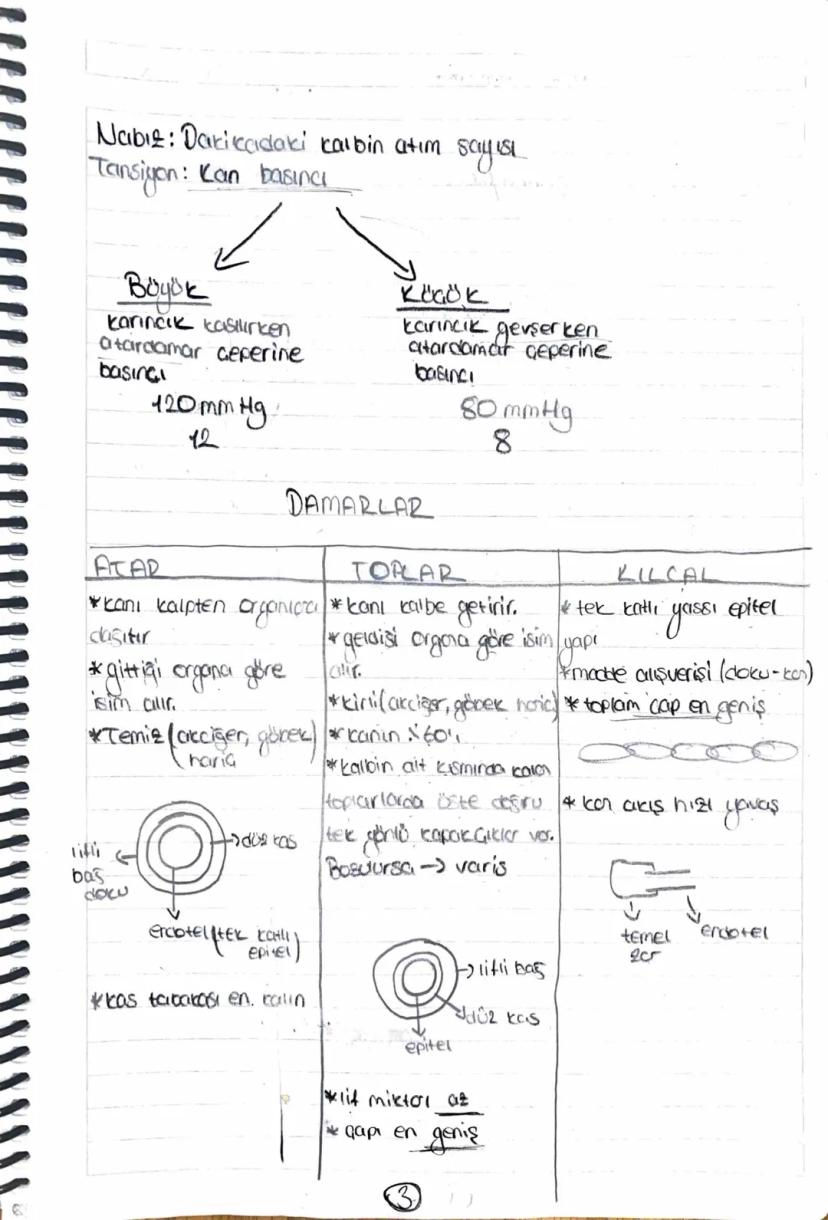 Nabız: Dakikadaki kalbin atım sayısı
Tansiyon: Kan basıncı
Büyük
karıncık kasılırken
atardamar çeperine
basıncı
120 mm Hg
12
Küçük
karıncık gevşerken
atardamar çeperine
basıncı
80 mmHg
8
DAMARLAR
ATAR
*kanı kalpten organlara
dağıtır
*gittiği organa göre
isim alır.
*Temiz (akciğer, göbek)
hariç
lifli
bağ
doku
düz kas
endotel (tek katlı
epitel)
*kas tabakası en kalın
TOPLAR
*kanı kalbe getirir.
*geldiği organa göre isim
alır.
*kirli (akciğer, göbek hariç)
*kanın %60'ı
*kalbin alt kısmında kalan
toplarlarda üste doğru
tek yönlü kapakçıklar var.
Bozulursa → varis
lifli bağ
düz kas
epitel
*lif miktarı az
*çapı en geniş
KILCAL
*tek katlı yassı epitel
yapı
*madde alışverişi (doku-kan)
*toplam çap en geniş
*kan akış hızı yavaş
temel
zar
endotel
3